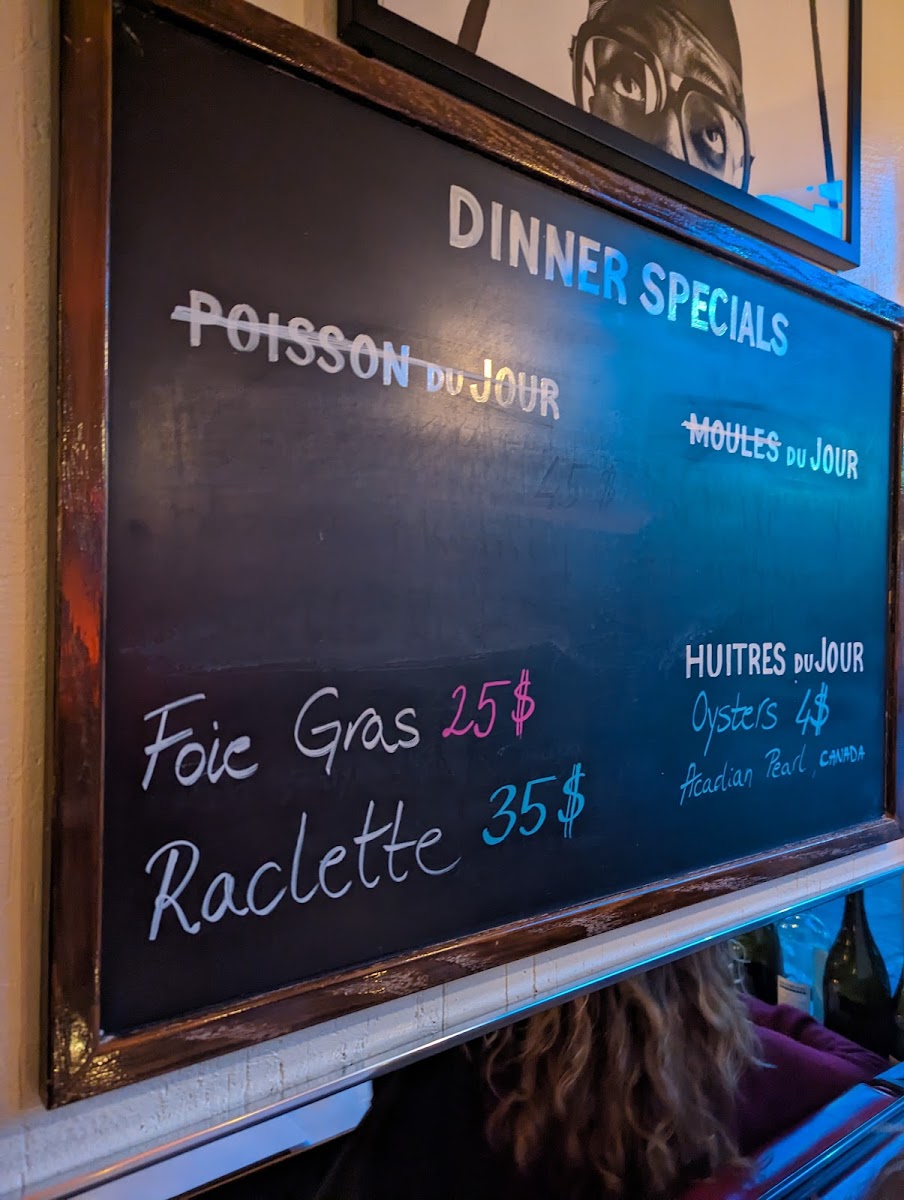 DINNER SPECIALS
POISSON DU JOUR
MOULES DU JOUR
45$
Foie Gras 25$
Raclette 35$
HUITRES DU JOUR
Oysters 4$
Acadian Pearl, CANADA